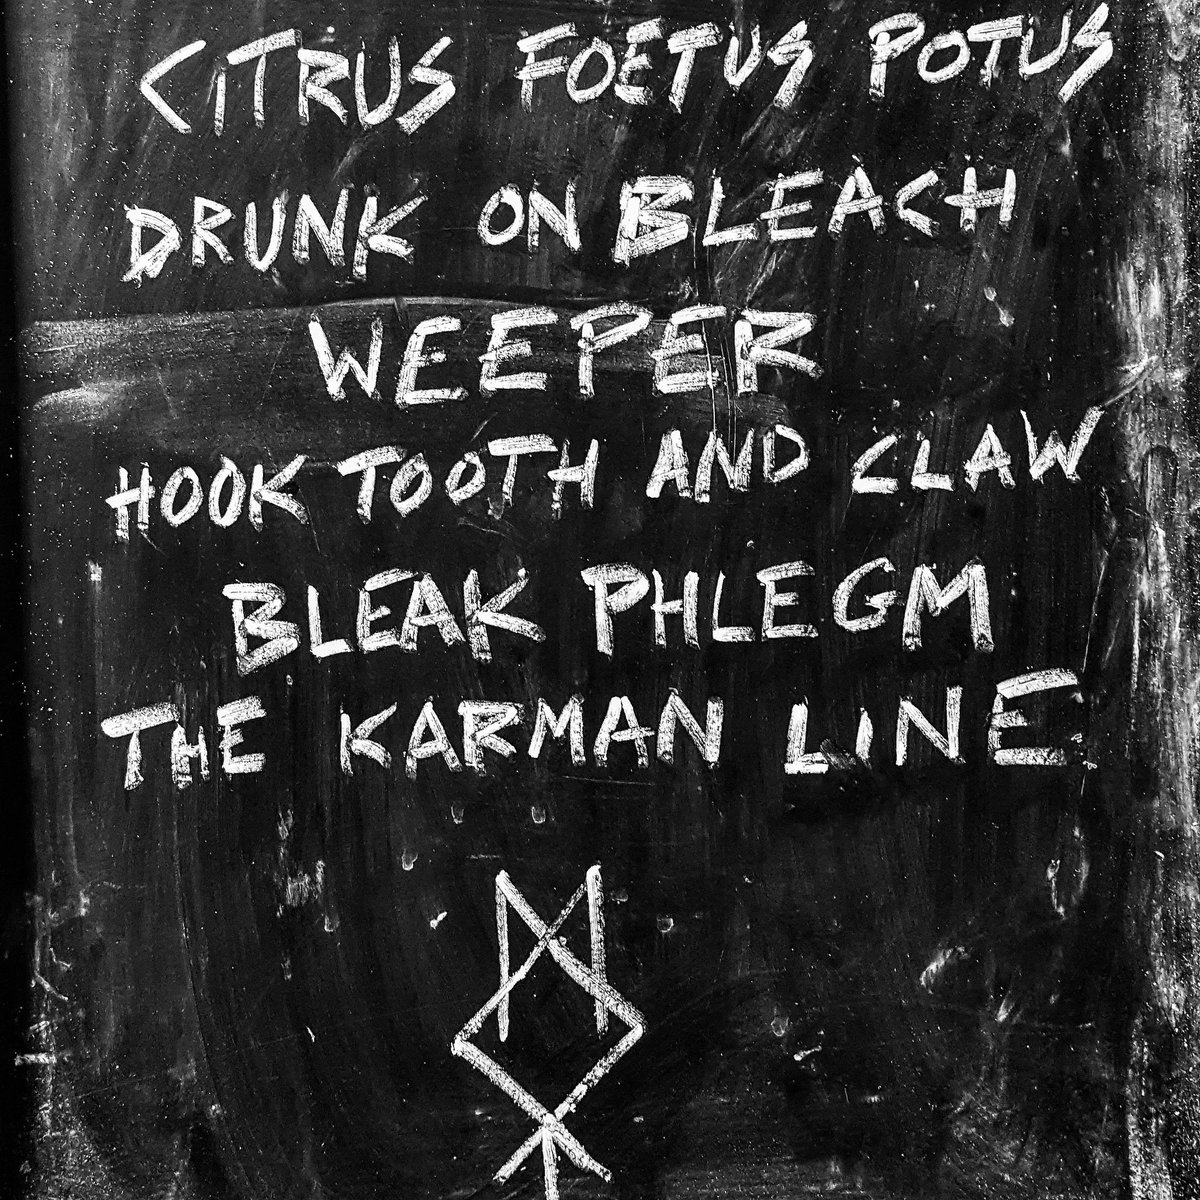 CiTRUS FOETUS POTUS
DRUNK ON BLEACH
WEEPER
HOOK TOOTH AND CLAW
BLEAK PHLEGM
THE KARMAN LiNE